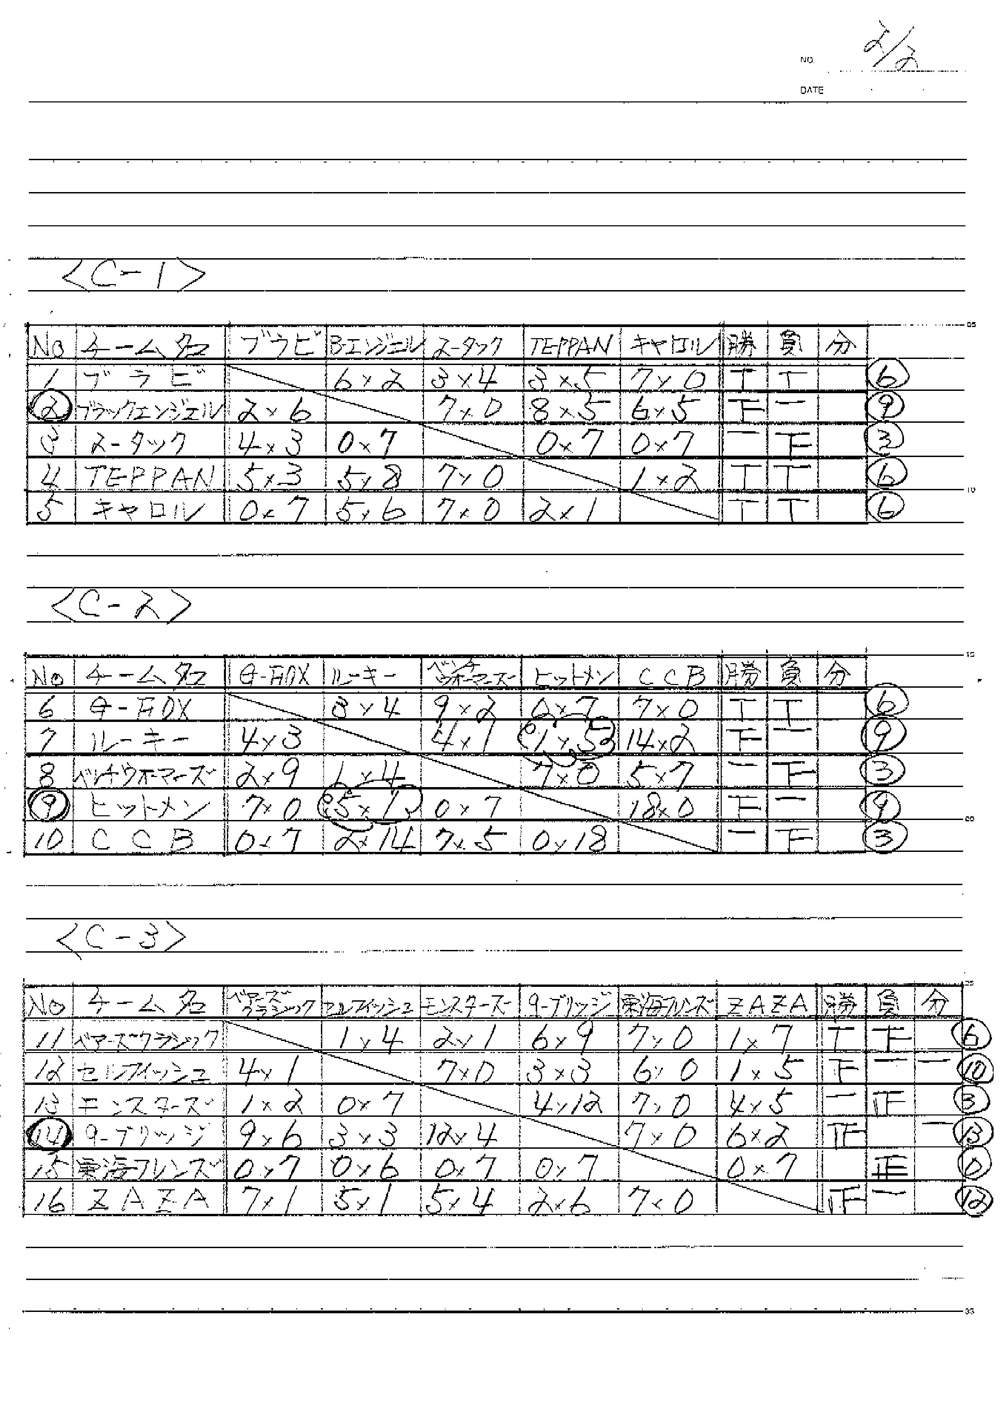 2/2
NO.
DATE
<C-1>
No チーム名 ブラビ B・エンジェル スータック TEPPAN キャロル 勝 負 分
1 ブラビ 6×2 3×4 3×5 7×0 T T 6
2 ブラックエンジェル 2×6 7×0 8×5 6×5 下 一 9
3 スータック 4×3 0×7 0×7 0×7 一 下 3
4 TEPPAN 5×3 5×8 7×0 1×2 T T 6
5 キャロル 0×7 5×6 7×0 2×1 T T 6
<C-2>
No チーム名 ルーキー ベンチウォーマーズ ヒットメン CCB 勝 負 分
6 3×4 9×2 0×7 7×0 T T 6
7 ルーキー 4×3 4×1 14×2 下 一 9
8 ベンチウォーマーズ 2×9 1×4 7×0 5×7 一 下 3
9 ヒットメン 7×0 0×7 18×0 下 一 9
10 CCB 0×7 2×14 7×5 0×18 一 下 3
<C-3>
No チーム名 ベアーズクラシック セルフィッシュ モンスターズ 9-ブリッジ 東海フレンズ ZAZA 勝 負 分
11 ベアーズクラシック 1×4 2×1 6×9 7×0 1×7 T 下 6
12 セルフィッシュ 4×1 7×0 3×3 6×0 1×5 下 一 一 10
13 モンスターズ 1×2 0×7 4×12 7×0 4×5 一 正 3
14 9-ブリッジ 9×6 3×3 12×4 7×0 6×2 正 一 13
15 東海フレンズ 0×7 0×6 0×7 0×7 0×7 正 0
16 ZAZA 7×1 5×1 5×4 2×6 7×0 正 一 12